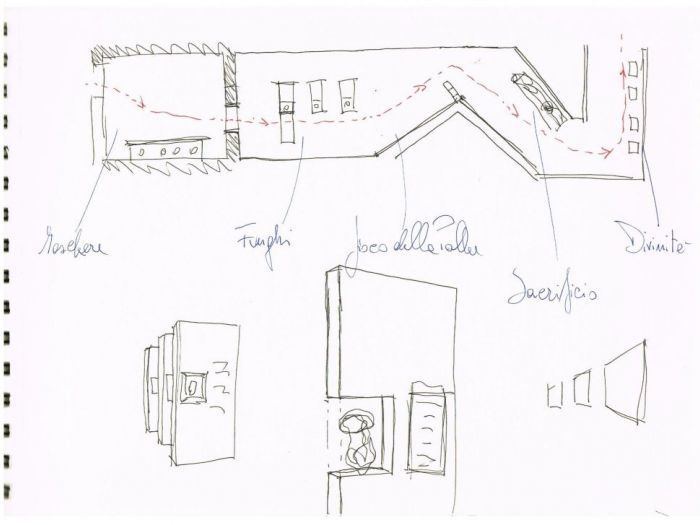 Maschere
Funghi
Gioco della Palla
Sacrificio
Divinità